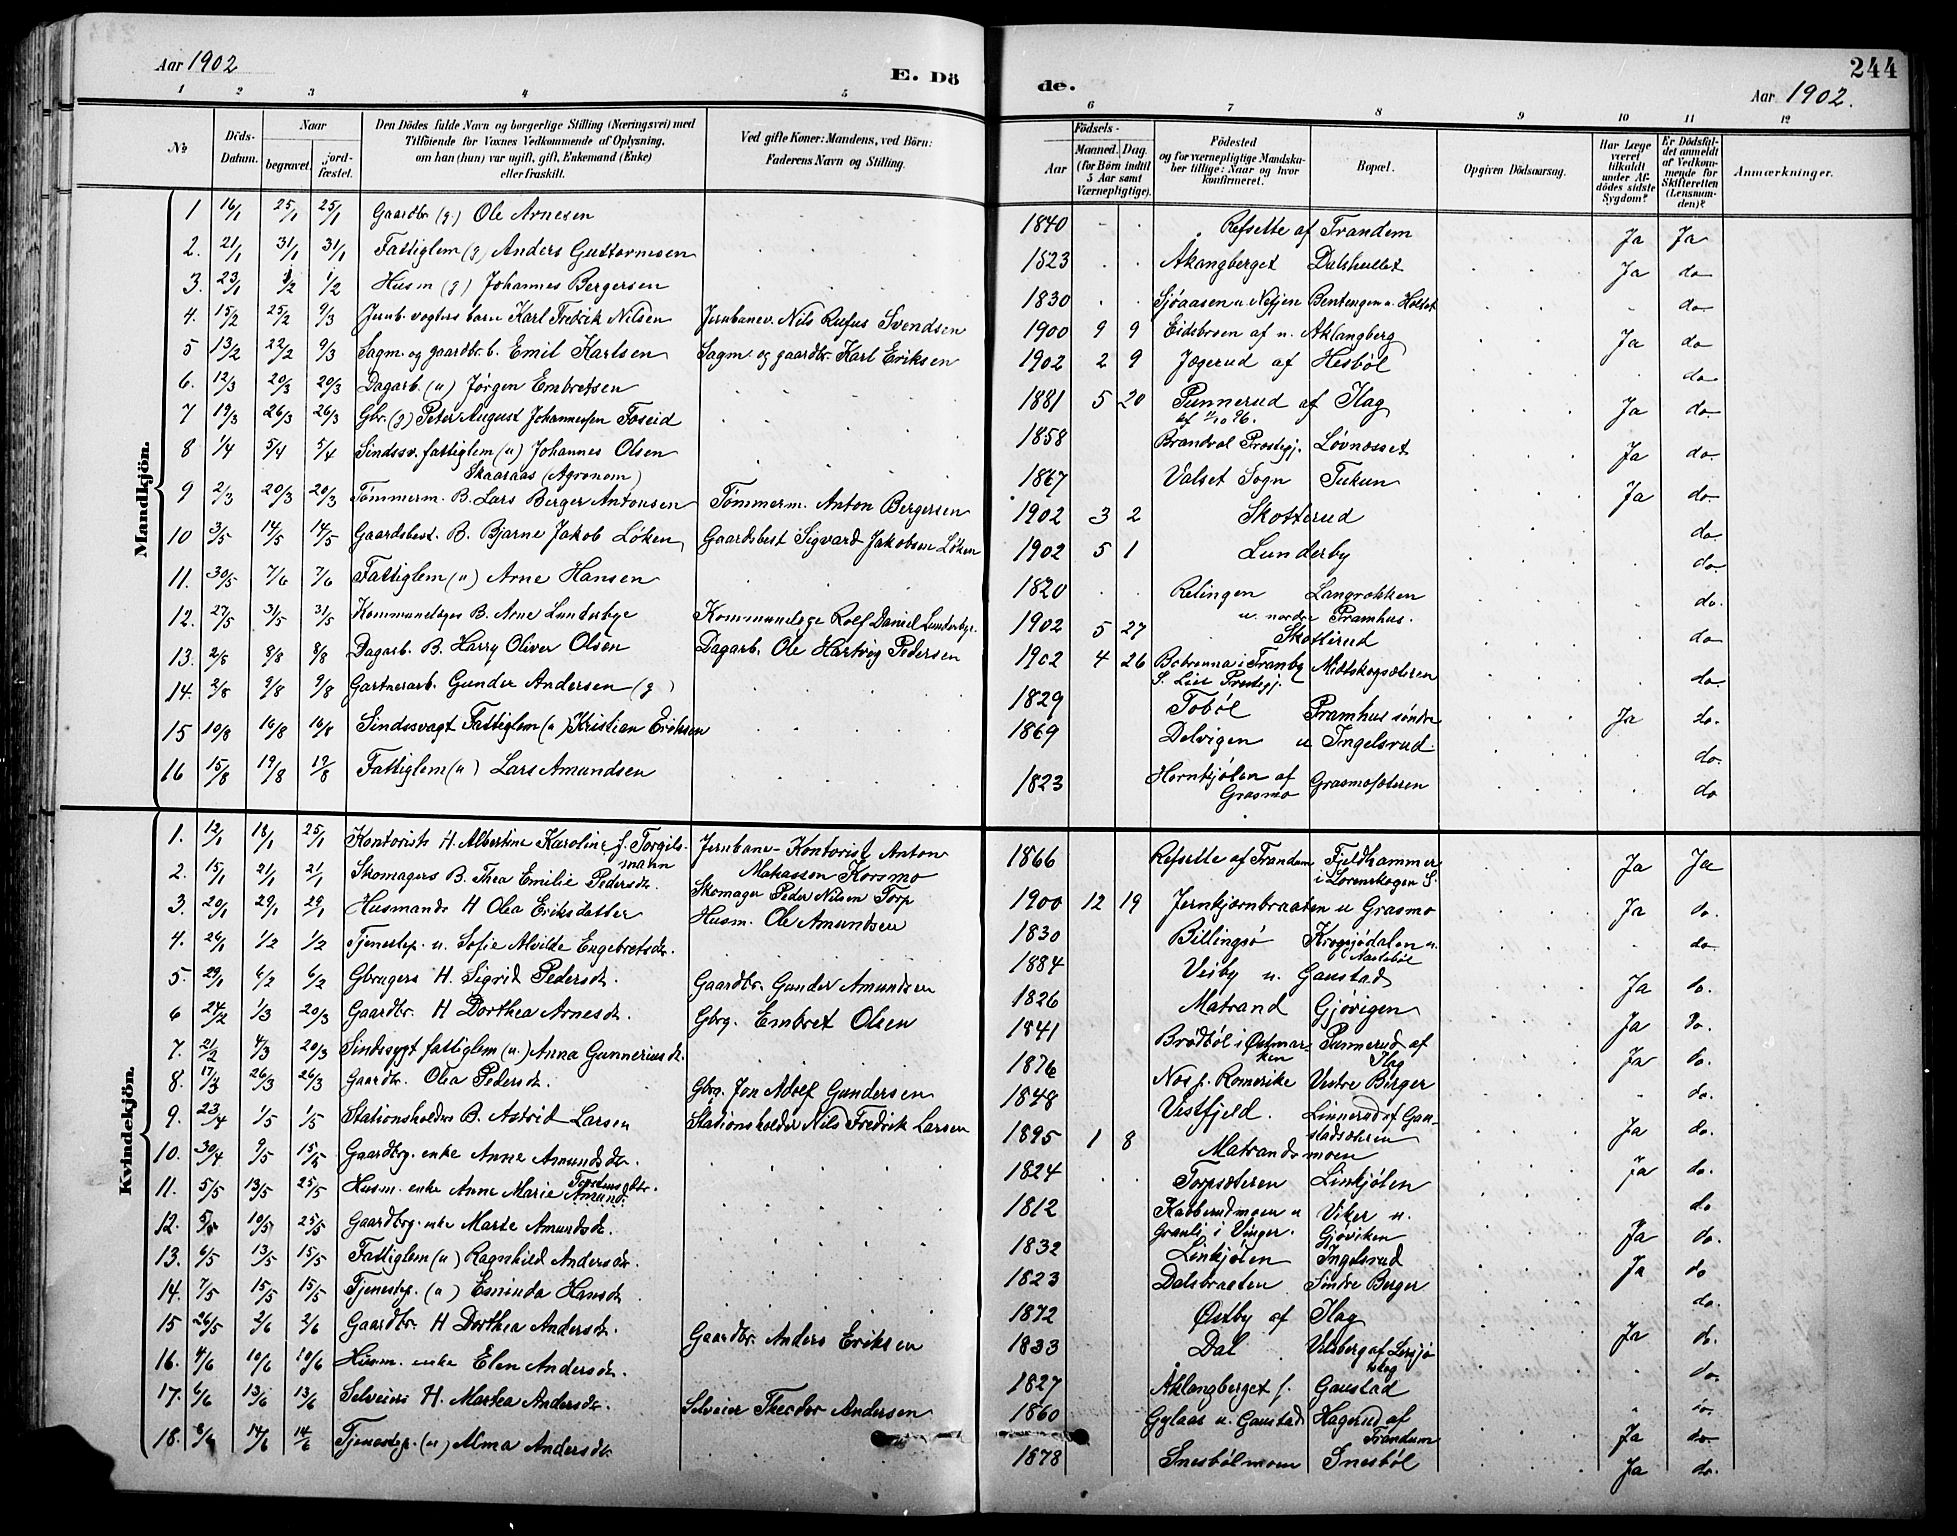 Aar 1902
E. Dö
de.
244
Aar 1902.
1 2 3 4 5 6 7 8 9 10 11 12
No
Döds-Datum.
Naar
begravet.
jordfæstet.
Den Dödes fulde Navn og borgerlige Stilling (Næringsvei) med
Tilföiende for Voxnes Vedkommende af Oplysning,
om han (hun) var ugift, gift, Enkemand (Enke)
eller fraskilt.
Ved gifte Koner: Mandens, ved Börn:
Faderens Navn og Stilling.
Födsels-
Aar
Maaned. Dag.
(for Börn indtil
5 Aar samt
Værnepligtige).
Födested
og for værnepligtige Mandskaber tillige: Naar og hvor
konfirmeret.
Bopæl.
Opgiven Dödsaarsag.
Har Læge
været
tilkaldt
under Afdödes sidste
Sygdom?
Er Dödsfaldet anmeldt
af Vedkommende for
Skifteretten
(Lensmanden)?
Anmærkninger.
Mandkjön.
1 16/1 25/1 25/1 Gaardbr (g) Ole Arnesen 1840 Refsette af Trandem Ja Ja
2. 21/1 31/1 31/1 Fattiglem (g) Anders Guttormsen 1823 Åkangberget Dalshullet Ja do
3. 23/1 1/2 1/2 Husm (g) Johannes Bergersen 1830 Sjöaasen u. Nefjen Bentengen u. Holst do
4. 15/2 25/2 9/3 Jernb. vogters barn Karl Fredrik Nilsen Jernbanev. Nils Rufus Svendsen 1900 9 9 Eidsbroen af n. Aklangberg Ja do
5 13/2 22/2 9/3 Sagm. og gaardbr. b. Emil Karlsen Sagm. og gaardbr. Karl Eriksen 1902 2 9 Jægerud af Hesböl do
6. 12/3 20/3 20/3 Dagarb. (u) Jörgen Embretsen 1881 5 20 Punnerud af Ilag Ja do
7 19/3 26/3 26/3 Gbr. (g) Peter August Johannessen Foseid 1858 Brandval Prestegj. Lövnæsset Ja do.
8 1/4 5/4 5/4 Sindssv. fattiglem (u) Johannes Olsen
Skaaraas (Agronom) 1867 Valset Sogn Tukun Ja do
9 2/3 20/3 20/3 Tömmerm. B. Lars Berger Antonsen Tömmerm. Anton Bergersen 1902 3 2 Skotterud do.
10 3/5 14/5 14/5 Gaardsbest. B. Bjarne Jakob Löken Gaardsbest Sigvard Jakobsen Löken 1902 5 1 Lunderby do.
11. 30/5 7/6 7/6 Fattiglem (u) Arne Hansen 1820 Relingen Langrakken
u. nordre Pramhus. do.
12. 27/5 31/5 31/5 Kommunelæges B. Arne Lunderbye Kommunelæge Rolf Daniel Lunderbye 1902 5 27 Skotterud do
13. 2/8 8/8 8/8 Dagarb. B. Harry Oliver Olsen Dagarb. Ole Hartvig Pedersen 1902 4 26 Midtskogsæteren do.
14. 2/8 9/8 9/8 Gartnerarb. Gunder Andersen (g) 1829 Toböl Pramhus söndre Ja do.
15 10/8 16/8 16/8 Sindssvagt Fattiglem (u) Kristian Eriksen 1869 Delvigen u Ingelsrud. do.
16 15/8 19/8 19/8 Fattiglem (u) Lars Amundsen 1823 Hornkjölen af
Grasmo Grasmosæteren do
Kvindekjön.
1. 12/1 18/1 25/1 Kontorists H. Albertine Karoline f. Torgilsmann Jernbane-Kontorist Anton
Korsmo 1866 Refsette af Trandem Fjeldhammer
i Lorenskogen S. Ja Ja
2. 15/1 21/1 21/1 Skomagers B. Thea Emilie Pedersdr. Skomager Peder Nilsen Torp 1900 12 19 Jernkjernbraaten u Grasmo Ja do.
3. 20/1 29/1 29/1 Husmands H Olea Eriksdatter Husm. Ole Amundsen 1830 Billingsö Krogsjödalen u. do.
4. 26/1 1/2 1/2 Tjenestep. u. Sofie Alvilde Engebretsdr. 1884 Visby u. Gaustad Ja do.
5. 29/1 6/2 6/2 Gbrugers H. Sigrid Pedersdr. Gaardbr. Gunder Amundsen 1826 Matrand Gjövigen Ja do.
6 24/2 1/3 20/3 Gaardbr. H Dorthea Arnesdr. Gbrg. Embret Olsen 1841 Brödböl i Östmarken Punnerud af
Ilag Ja do.
7. 21/2 4/3 20/3 Sindssygt fattiglem (u) Anna Gunneriusdr. 1876 Nos p. Romerike Vestre Berger do.
8. 17/3 26/3 26/3 Gaardbr. Olea Pedersdr. Gbrg. Jon Adolf Gundersen 1848 Vestfjeld. Linnerud af Gaustadsæteren Ja do.
9. 23/4 1/5 1/5 Stationsholders B. Astrid Larsen Stationsholder Nils Fredrik Larsen 1895 1 8 Matrandsmoen Ja do.
10. 30/4 9/5 15/5 Gaardbrg. enke Anne Amundsdr. 1824 Torpsæteren Linkjölen do
11. 5/5 13/5 25/5 Husm. enke Anne Marie 1812 Viker u.
Gjöviken Ja do.
12. 10/5 25/5 Gaardbrg. enke Marie Amundsdr. 1832 Linkjölen Ingelsrud Ja do
13. 6/5 13/5 15/5 Fattiglem (u) Ragnhild Andersdr. 1823 Dalsbraaten Söndre Berger do.
14. 7/5 15/5 15/5 Tjenestep. (u) Eminda Hansdr. 1872 Östby af Ilag Ja do.
15 26/5 2/6 2/6 Gaardbr. H Dorthea Andersdr. Gaardbr. Anders Eriksen 1833 Dal do.
16. 4/6 10/6 10/6 Husm. enke Elen Andersdr. 1827 Åklangberget f. Gaustad do.
17. 6/6 13/6 13/6 Selveiers H. Marthea Andersdr. Selveier Theodor Andersen 1860 Gylaas u. Gaustad Hagerud af
Trandem Ja do
18. 8/6 14/6 14/6 Tjenestep. (u) Alma Andersdr. 1878 Snesbölmoen Snesböl Ja do.